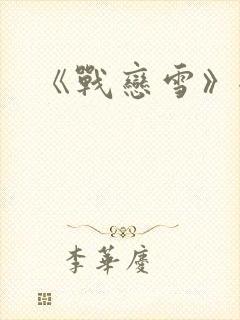 《戰戀雪》
李華慶